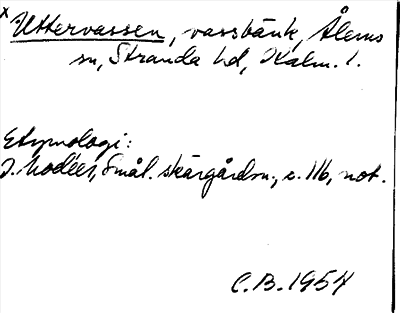 x Uttervassen, vassbänk, Ålems
sn, Stranda hd, Kalm. l.
Etymologi:
I. Modéer, Smål. skärgårdsn., s. 116, not.
C.B. 1954